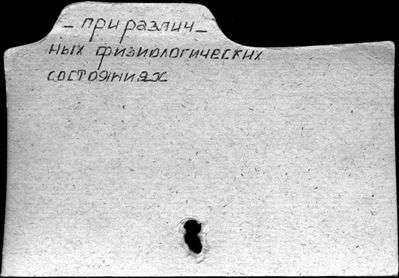 – при различ–
ных физиологических
состояниях